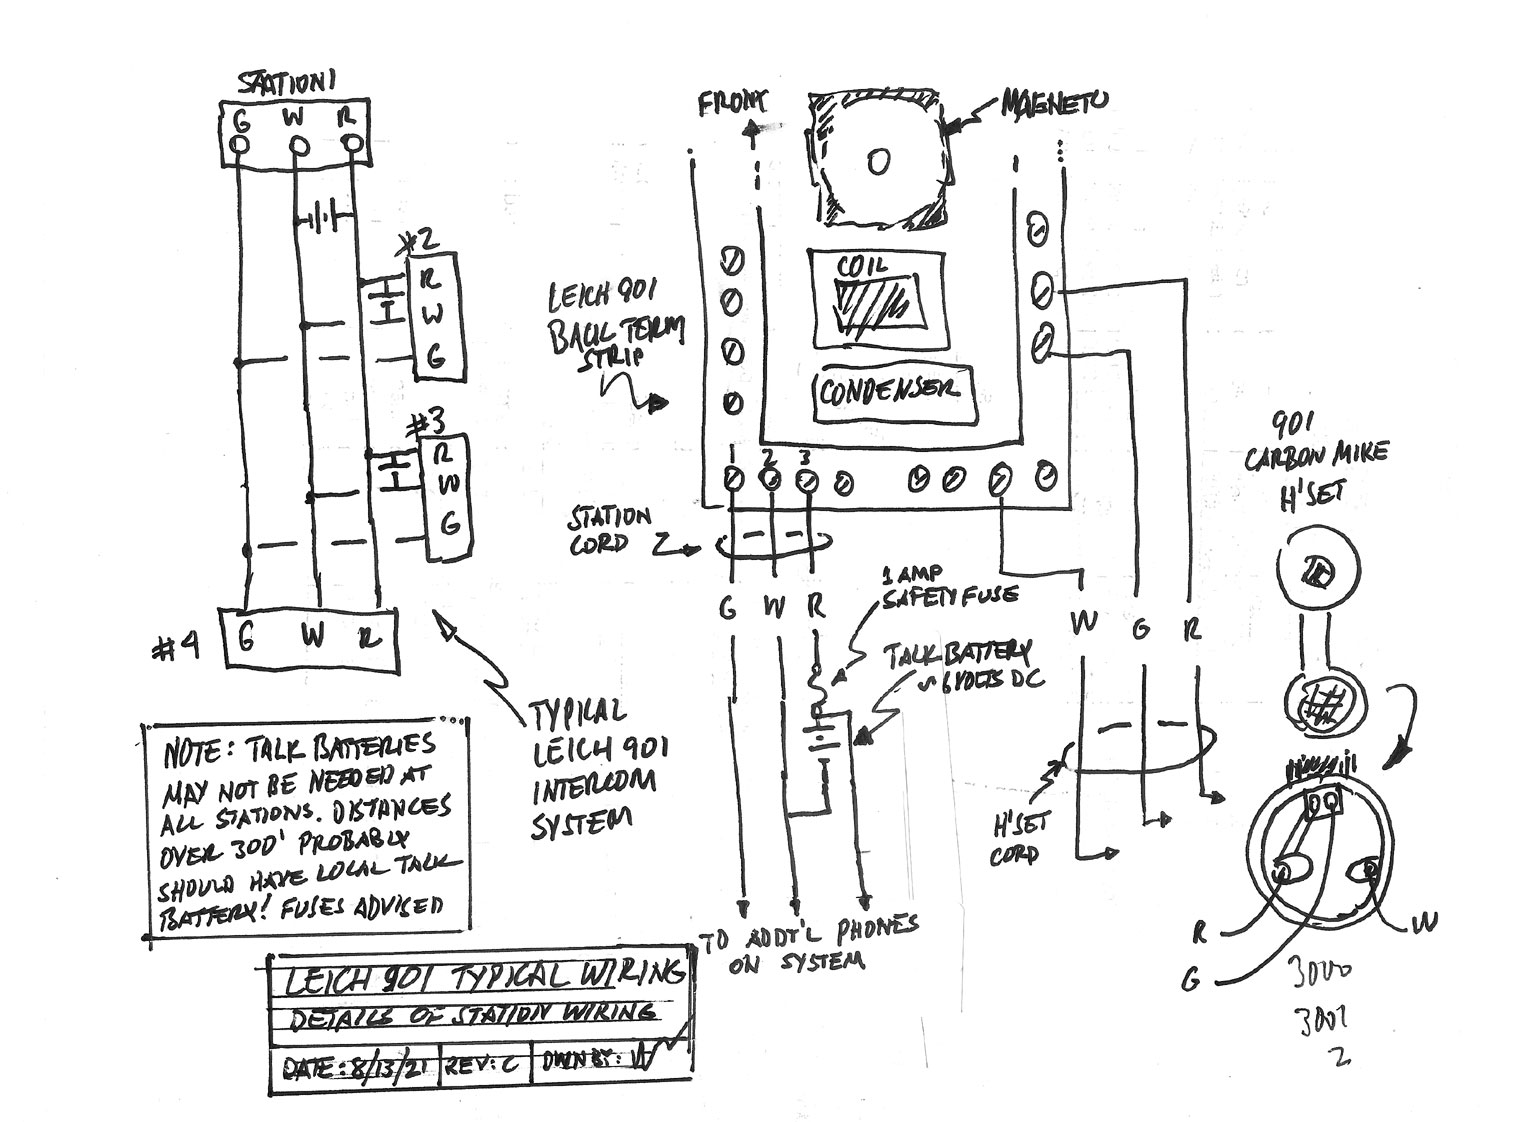 STATION 1
G W R
#2
R
W
G
#3
R
W
G
#4 G W R
TYPICAL
LEICH 901
INTERCOM
SYSTEM
NOTE: TALK BATTERIES
MAY NOT BE NEEDED AT
ALL STATIONS. DISTANCES
OVER 300' PROBABLY
SHOULD HAVE LOCAL TALK
BATTERY! FUSES ADVISED
FRONT
MAGNETO
LEICH 901
BACK TERM
STRIP
COIL
CONDENSER
1 2 3
STATION
CORD
G W R
1 AMP
SAFETY FUSE
TALK BATTERY
~ 6 VOLTS DC
TO ADDT'L PHONES
ON SYSTEM
W G R
H'SET
CORD
901
CARBON MIKE
H'SET
R
W
G
3000
3001
2
LEICH 901 TYPICAL WIRING
DETAILS OF STATION WIRING
DATE: 8/13/21 REV: C DWN BY: